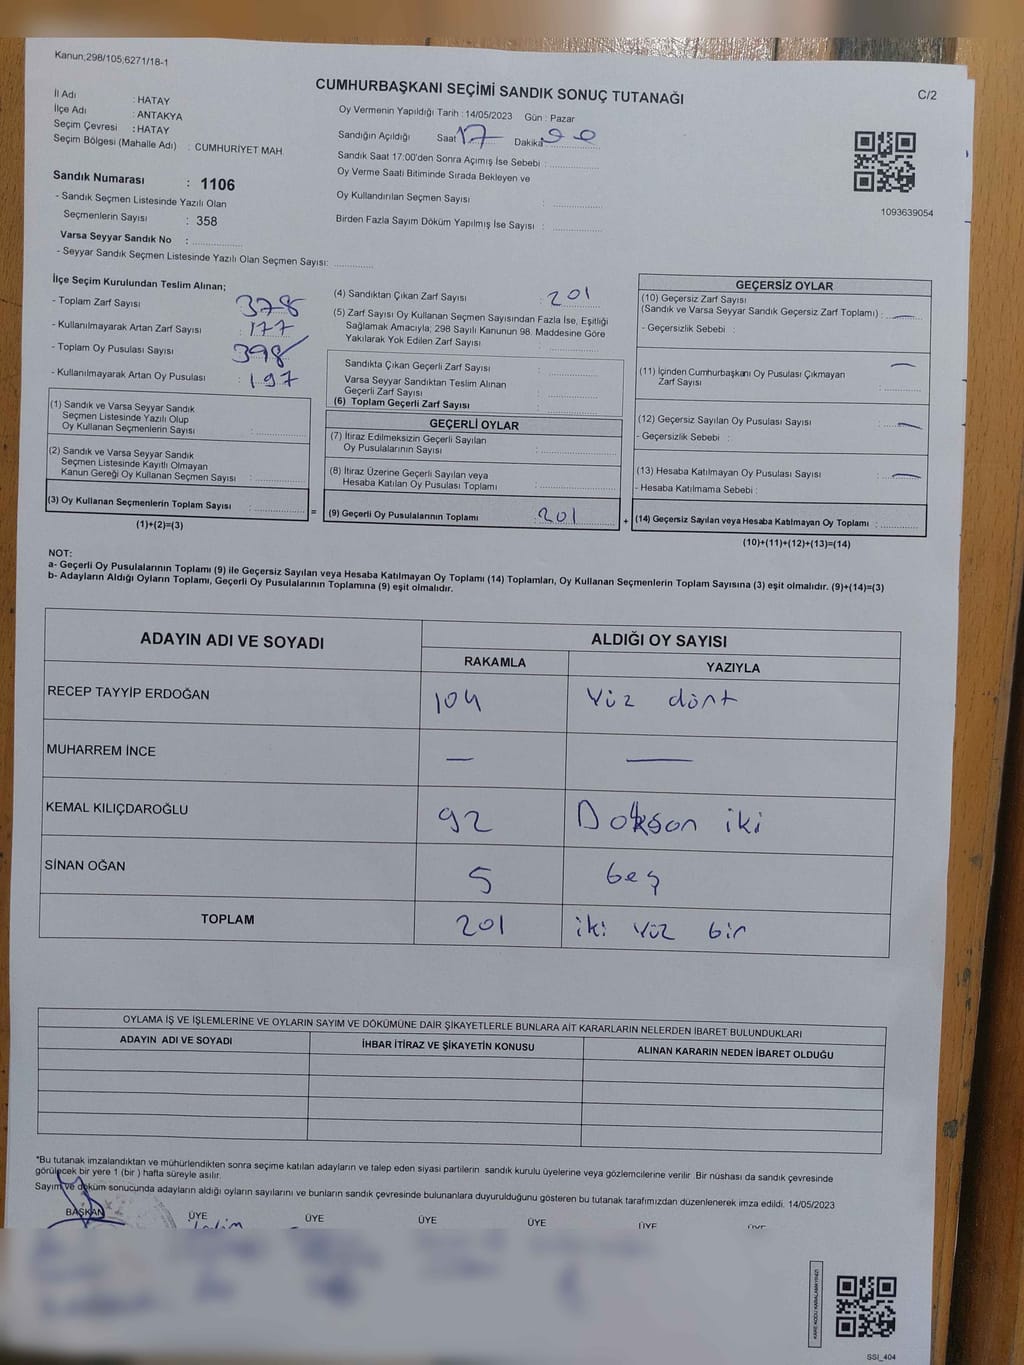 Kanun;298/105;6271/18-1
CUMHURBAŞKANI SEÇİMİ SANDIK SONUÇ TUTANAĞI
C/2
İl Adı : HATAY
İlçe Adı : ANTAKYA
Seçim Çevresi : HATAY
Seçim Bölgesi (Mahalle Adı) : CUMHURİYET MAH.
Sandık Numarası : 1106
- Sandık Seçmen Listesinde Yazılı Olan
Seçmenlerin Sayısı : 358
Varsa Seyyar Sandık No :
- Seyyar Sandık Seçmen Listesinde Yazılı Olan Seçmen Sayısı:
Oy Vermenin Yapıldığı Tarih : 14/05/2023 Gün : Pazar
Sandığın Açıldığı Saat 17 Dakika 00
Sandık Saat 17:00'den Sonra Açımış İse Sebebi :
Oy Verme Saati Bitiminde Sırada Bekleyen ve
Oy Kullandırılan Seçmen Sayısı :
Birden Fazla Sayım Döküm Yapılmış İse Sayısı :
1093639054
İlçe Seçim Kurulundan Teslim Alınan;
- Toplam Zarf Sayısı 378
- Kullanılmayarak Artan Zarf Sayısı : 177
- Toplam Oy Pusulası Sayısı 398
- Kullanılmayarak Artan Oy Pusulası : 197
(1) Sandık ve Varsa Seyyar Sandık
Seçmen Listesinde Yazılı Olup
Oy Kullanan Seçmenlerin Sayısı :
(2) Sandık ve Varsa Seyyar Sandık
Seçmen Listesinde Kayıtlı Olmayan
Kanun Gereği Oy Kullanan Seçmen Sayısı :
(3) Oy Kullanan Seçmenlerin Toplam Sayısı :
(1)+(2)=(3)
(4) Sandıktan Çıkan Zarf Sayısı : 201
(5) Zarf Sayısı Oy Kullanan Seçmen Sayısından Fazla İse, Eşitliği
Sağlamak Amacıyla; 298 Sayılı Kanunun 98. Maddesine Göre
Yakılarak Yok Edilen Zarf Sayısı :
Sandıkta Çıkan Geçerli Zarf Sayısı :
Varsa Seyyar Sandıktan Teslim Alınan
Geçerli Zarf Sayısı :
(6) Toplam Geçerli Zarf Sayısı :
GEÇERLİ OYLAR
(7) İtiraz Edilmeksizin Geçerli Sayılan
Oy Pusulalarının Sayısı :
(8) İtiraz Üzerine Geçerli Sayılan veya
Hesaba Katılan Oy Pusulası Toplamı :
= (9) Geçerli Oy Pusulalarının Toplamı : 201
GEÇERSİZ OYLAR
(10) Geçersiz Zarf Sayısı
(Sandık ve Varsa Seyyar Sandık Geçersiz Zarf Toplamı) : —
- Geçersizlik Sebebi :
(11) İçinden Cumhurbaşkanı Oy Pusulası Çıkmayan —
Zarf Sayısı :
(12) Geçersiz Sayılan Oy Pusulası Sayısı : —
- Geçersizlik Sebebi :
(13) Hesaba Katılmayan Oy Pusulası Sayısı : —
- Hesaba Katılmama Sebebi :
+ (14) Geçersiz Sayılan veya Hesaba Katılmayan Oy Toplamı :
(10)+(11)+(12)+(13)=(14)
NOT:
a- Geçerli Oy Pusulalarının Toplamı (9) ile Geçersiz Sayılan veya Hesaba Katılmayan Oy Toplamı (14) Toplamları, Oy Kullanan Seçmenlerin Toplam Sayısına (3) eşit olmalıdır. (9)+(14)=(3)
b- Adayların Aldığı Oyların Toplamı, Geçerli Oy Pusulalarının Toplamına (9) eşit olmalıdır.
ADAYIN ADI VE SOYADI ALDIĞI OY SAYISI
RAKAMLA YAZIYLA
RECEP TAYYİP ERDOĞAN 104 Yüz dört
MUHARREM İNCE — —
KEMAL KILIÇDAROĞLU 92 Dokson iki
SİNAN OĞAN 5 beş
TOPLAM 201 iki yüz bir
OYLAMA İŞ VE İŞLEMLERİNE VE OYLARIN SAYIM VE DÖKÜMÜNE DAİR ŞİKAYETLERLE BUNLARA AİT KARARLARIN NELERDEN İBARET BULUNDUKLARI
ADAYIN ADI VE SOYADI İHBAR İTİRAZ VE ŞİKAYETİN KONUSU ALINAN KARARIN NEDEN İBARET OLDUĞU
*Bu tutanak imzalandıktan ve mühürlendikten sonra seçime katılan adayların ve talep eden siyasi partilerin sandık kurulu üyelerine veya gözlemcilerine verilir. Bir nüshası da sandık çevresinde
görülecek bir yere 1 (bir ) hafta süreyle asılır.
Sayım ve döküm sonucunda adayların aldığı oyların sayılarını ve bunların sandık çevresinde bulunanlara duyurulduğunu gösteren bu tutanak tarafımızdan düzenlenerek imza edildi. 14/05/2023
BAŞKAN ÜYE ÜYE ÜYE ÜYE ÜYE ÜYE
KARE KODU KARALAMAYINIZ!
SSI_404